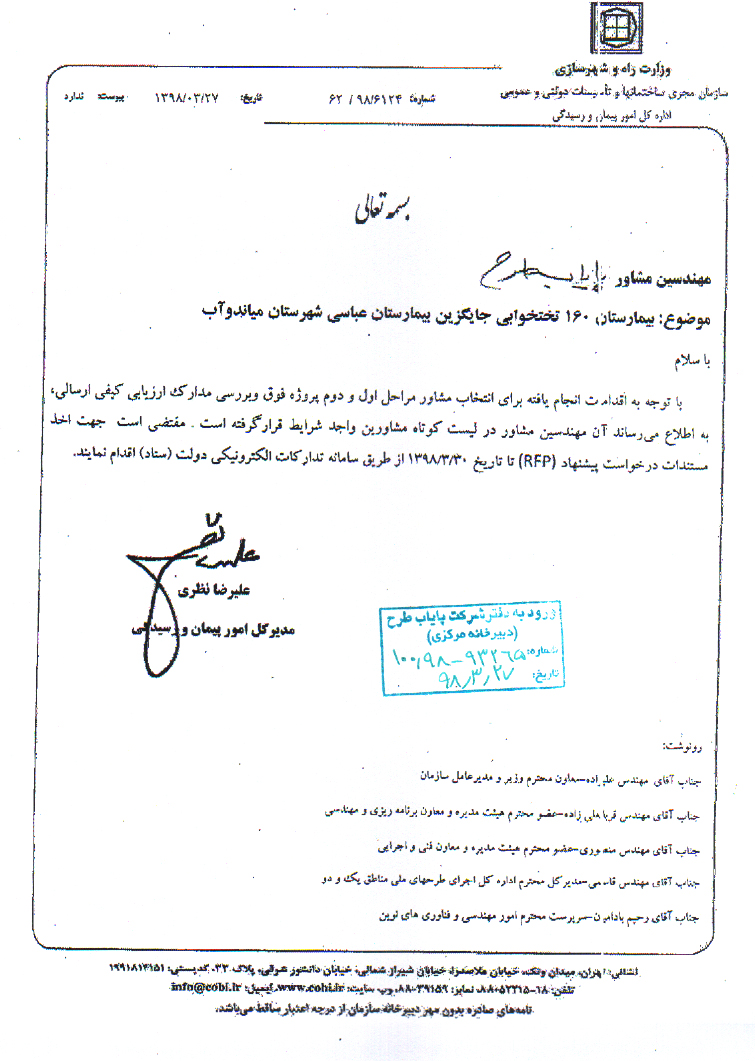 وزارت راه و شهرسازی
سازمان مجری ساختمانها و تأسیسات دولتی و عمومی
اداره کل امور پیمان و رسیدگی
شماره: ۹۸/۶۱۲۴ / ۶۲ تاریخ: ۱۳۹۸/۰۳/۲۷ پیوست: ندارد
بسمه تعالی
مهندسین مشاور پایاب طرح
موضوع: بیمارستان ۱۶۰ تختخوابی جایگزین بیمارستان عباسی شهرستان میاندوآب
با سلام
با توجه به اقدامات انجام یافته برای انتخاب مشاور مراحل اول و دوم پروژه فوق وبررسی مدارک ارزیابی کیفی ارسالی،
به اطلاع می‌رساند آن مهندسین مشاور در لیست کوتاه مشاورین واجد شرایط قرارگرفته است . مقتضی است جهت اخذ
مستندات درخواست پیشنهاد (RFP) تا تاریخ ۱۳۹۸/۳/۳۰ از طریق سامانه تدارکات الکترونیکی دولت (ستاد) اقدام نمایند.
علیرضا نظری
مدیرکل امور پیمان و رسیدگی
ورود به دفتر شرکت پایاب طرح
(دبیرخانه مرکزی)
شماره: ۱۰۰,۹۸-۹۳۲۶۵
تاریخ: ۹۸/۳/۲۷
رونوشت:
جناب آقای مهندس علیزاده-معاون محترم وزیر و مدیرعامل سازمان
جناب آقای مهندس قربانعلی زاده-عضو محترم هیئت مدیره و معاون برنامه ریزی و مهندسی
جناب آقای مهندس منصوری-عضو محترم هیئت مدیره و معاون فنی و اجرایی
جناب آقای مهندس قاسمی-مدیرکل محترم اداره کل اجرای طرحهای ملی مناطق یک و دو
جناب آقای رحیم بادامیان-سرپرست محترم امور مهندسی و فناوری های نوین
نشانی: تهران، میدان ونک، خیابان ملاصدرا، خیابان شیراز شمالی، خیابان دانشور شرقی، پلاک ۳۳، کدپستی: ۱۹۹۱۸۱۳۱۵۱
تلفن: ۱۸-۸۸۰۵۲۳۱۵، نمابر: ۸۸۰۳۹۱۵۹، وب سایت: www.cobi.ir، ایمیل: info@cobi.ir
نامه‌های صادره بدون مهر دبیرخانه سازمان از درجه اعتبار ساقط می‌باشد.